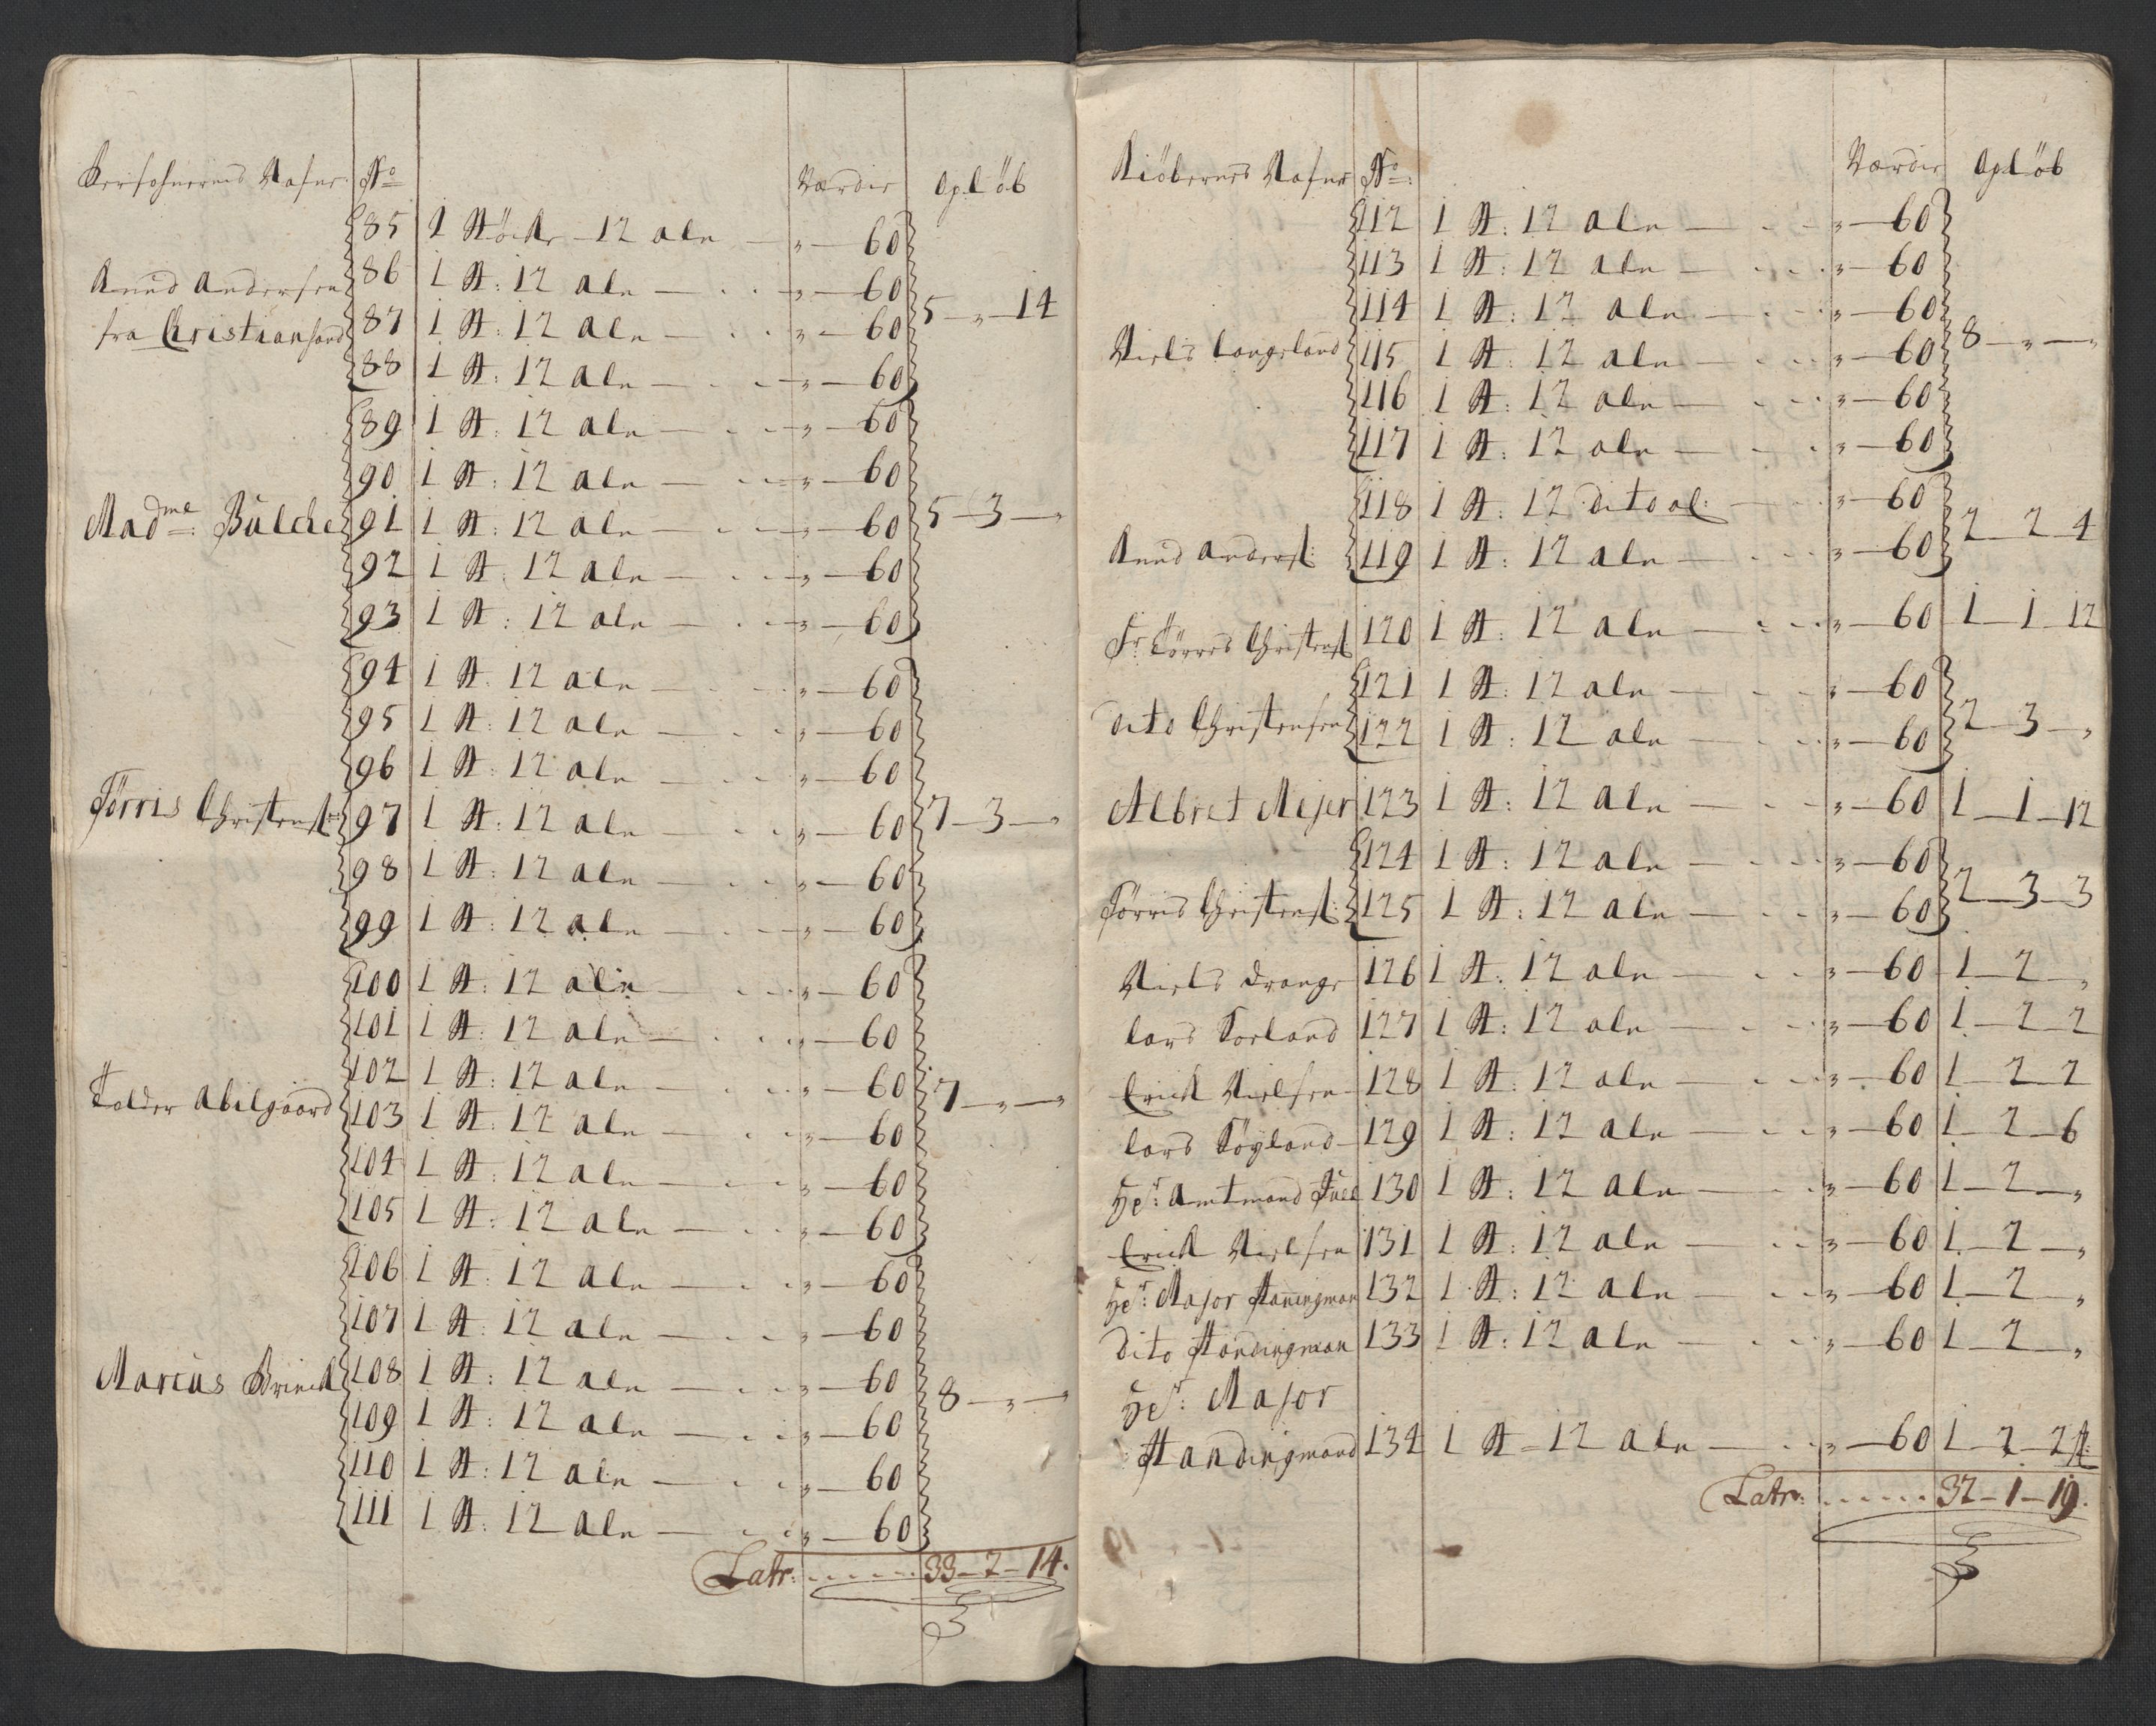 Persohnernes Nafne No Værdie Opløb
85 1 Støcke 12 alen „ 60
Aund Andersen 86 1 St: 12 alen „ 60
fra Christiansand 87 1 St: 12 alen „ 60 5 „ 14
88 1 St: 12 alen „ 60
89 1 St: 12 alen „ 60
90 1 St: 12 alen „ 60
Madme: Bülche 91 1 St: 12 alen „ 60 5 3 „
92 1 St: 12 alen „ 60
93 1 St: 12 alen „ 60
94 1 St: 12 alen „ 60
95 1 St: 12 alen „ 60
96 1 St: 12 alen „ 60
Törris Christens: 97 1 St: 12 alen „ 60 7 3 „
98 1 St: 12 alen „ 60
99 1 St: 12 alen „ 60
100 1 St: 12 alen „ 60
101 1 St: 12 alen „ 60
102 1 St: 12 alen „ 60
Tolder Abilgaard 103 1 St: 12 alen „ 60 7 „ „
104 1 St: 12 alen „ 60
105 1 St: 12 alen „ 60
106 1 St: 12 alen „ 60
107 1 St: 12 alen „ 60
Marcus Brinck 108 1 St: 12 alen „ 60
109 1 St: 12 alen „ 60 8 „ „
110 1 St: 12 alen „ 60
111 1 St: 12 alen „ 60
Latr: 33 - 2 - 14.
Kiöbernes Nafne No: Værdie Opløb
112 1 St: 12 alen „ 60
113 1 St: 12 alen „ 60
114 1 St: 12 alen „ 60
Niels Langeland 115 1 St: 12 alen „ 60 8 „ „
116 1 St: 12 alen „ 60
117 1 St: 12 alen „ 60
118 1 St: 12 dito al: „ 60
Aund Anders: 119 1 St: 12 alen „ 60 2 2 4
Sr: Törres Christens: 120 1 St: 12 alen „ 60 1 1 12
121 1 St: 12 alen „ 60
dito Christensen 122 1 St: 12 alen „ 60 2 3 „
Albret Mejer 123 1 St: 12 alen „ 60 1 1 12
124 1 St: 12 alen „ 60
Törris Christens: 125 1 St: 12 alen „ 60 2 3 3
Niels Drange 126 1 St: 12 alen „ 60 1 2 „
Lars Torland 127 1 St: 12 alen „ 60 1 2 2
Erich Nielsen 128 1 St: 12 alen „ 60 1 2 2
Lars Töyland 129 1 St: 12 alen „ 60 1 2 6
Hr: Amtmand Juel 130 1 St: 12 alen „ 60 1 2 „
Erich Nielsen 131 1 St: 12 alen „ 60 1 2 „
Hr: Major 132 1 St: 12 alen „ 60 1 2 „
dito Standingman 133 1 St: 12 alen „ 60 1 2 „
Hr: Major
Standingmand 134 1 St = 12 alen „ 60 1 2 2 st:
Latr: 32 - 1 - 19.